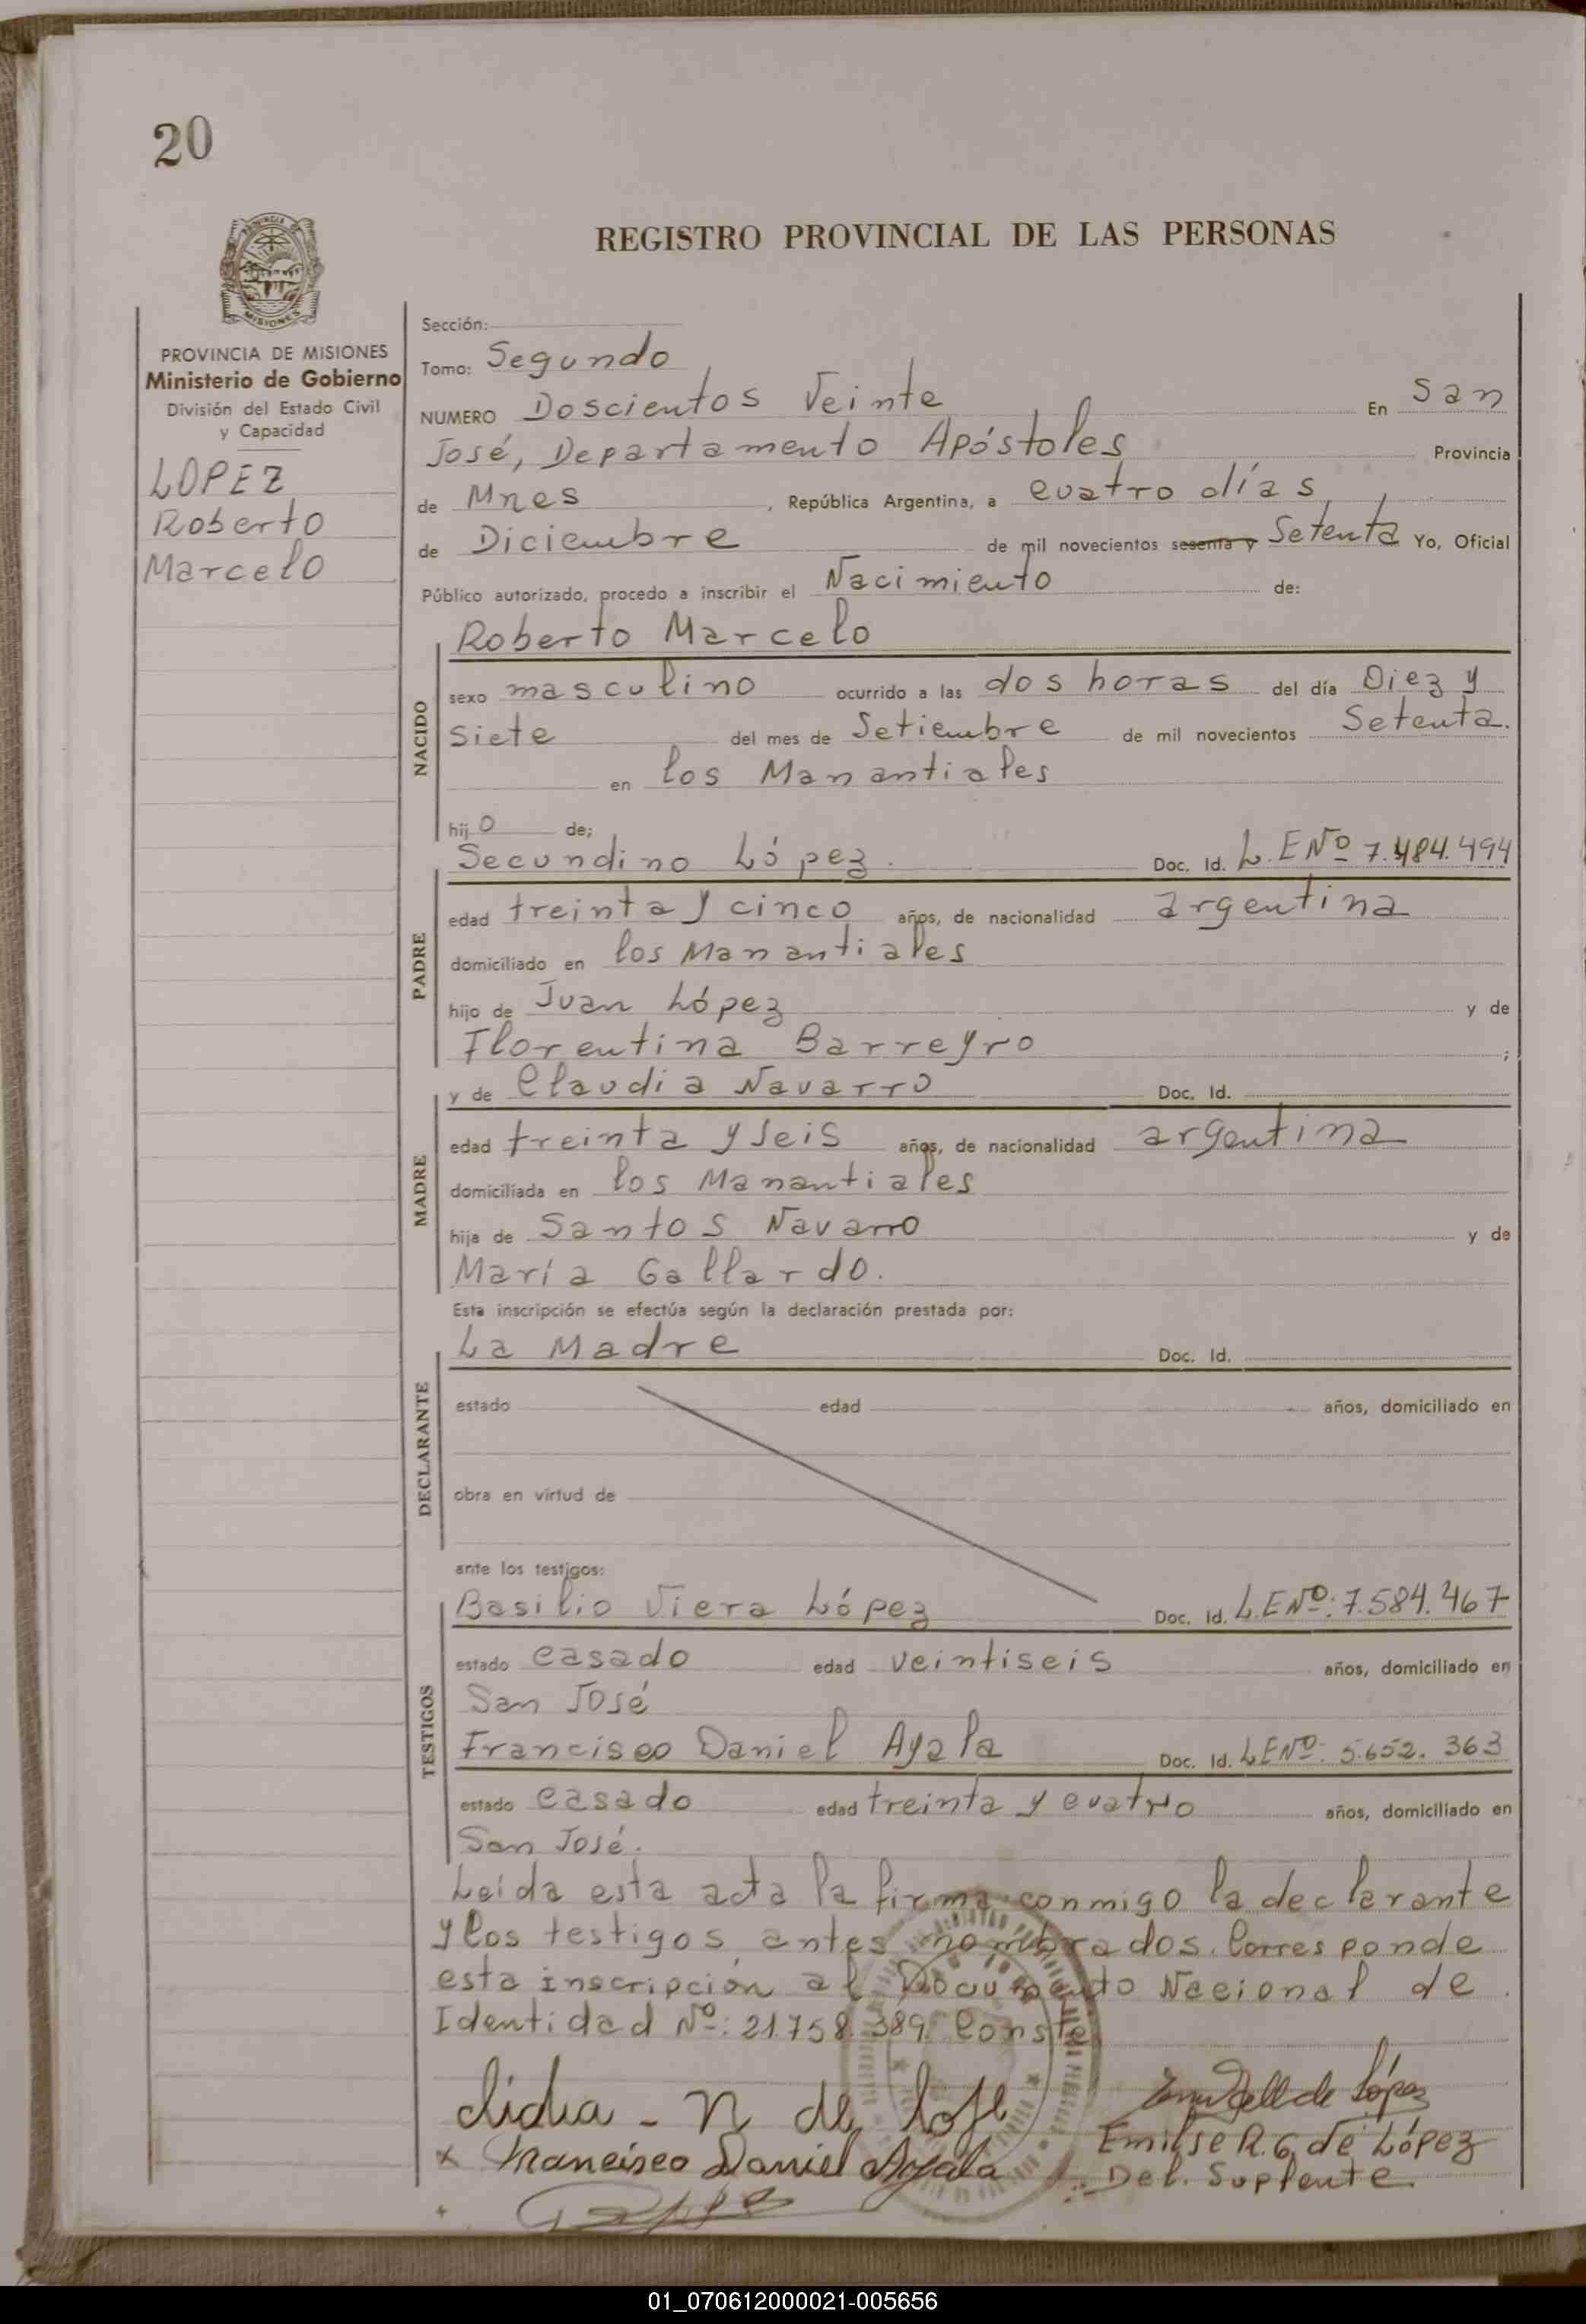 20
REGISTRO PROVINCIAL DE LAS PERSONAS
PROVINCIA DE MISIONES
Ministerio de Gobierno
División del Estado Civil
y Capacidad
LOPEZ
Roberto
Marcelo
Sección:
Tomo: Segundo
NUMERO Doscientos Veinte En San
José, Departamento Apóstoles Provincia
de Mnes, República Argentina, a cuatro días
de Diciembre de mil novecientos sesenta y Setenta Yo, Oficial
Público autorizado, procedo a inscribir el Nacimiento de:
NACIDO
Roberto Marcelo
sexo masculino ocurrido a las dos horas del día Diez y
siete del mes de Setiembre de mil novecientos Setenta.
en los Manantiales
hijo de;
PADRE
Secundino López. Doc. Id. L.E Nº 7.484.494
edad treinta y cinco años, de nacionalidad argentina
domiciliado en los Manantiales
hijo de Juan López y de
Florentina Barreyro ;
MADRE
y de Claudia Navarro Doc. Id.
edad treinta y seis años, de nacionalidad argentina
domiciliada en los Manantiales
hija de Santos Navarro y de
María Gallardo.
Esta inscripción se efectúa según la declaración prestada por:
DECLARANTE
La Madre Doc. Id.
estado edad años, domiciliado en
obra en virtud de
ante los testigos:
TESTIGOS
Basilio Viera López Doc. Id. L.E Nº: 7.584.467
estado casado edad veintiseis años, domiciliado en
San José
Francisco Daniel Ayala Doc. Id. L.E Nº: 5.652.363
estado casado edad treinta y cuatro años, domiciliado en
San José.
Leída esta acta la firma conmigo la declarante
y los testigos antes nombrados. Corresponde
esta inscripción al Documento Nacional de
Identidad Nº: 21.758.389. Conste
N de
de López
Francisco Daniel Ayala
Emilse R. G. de López
Del. Suplente
01_070612000021-005656